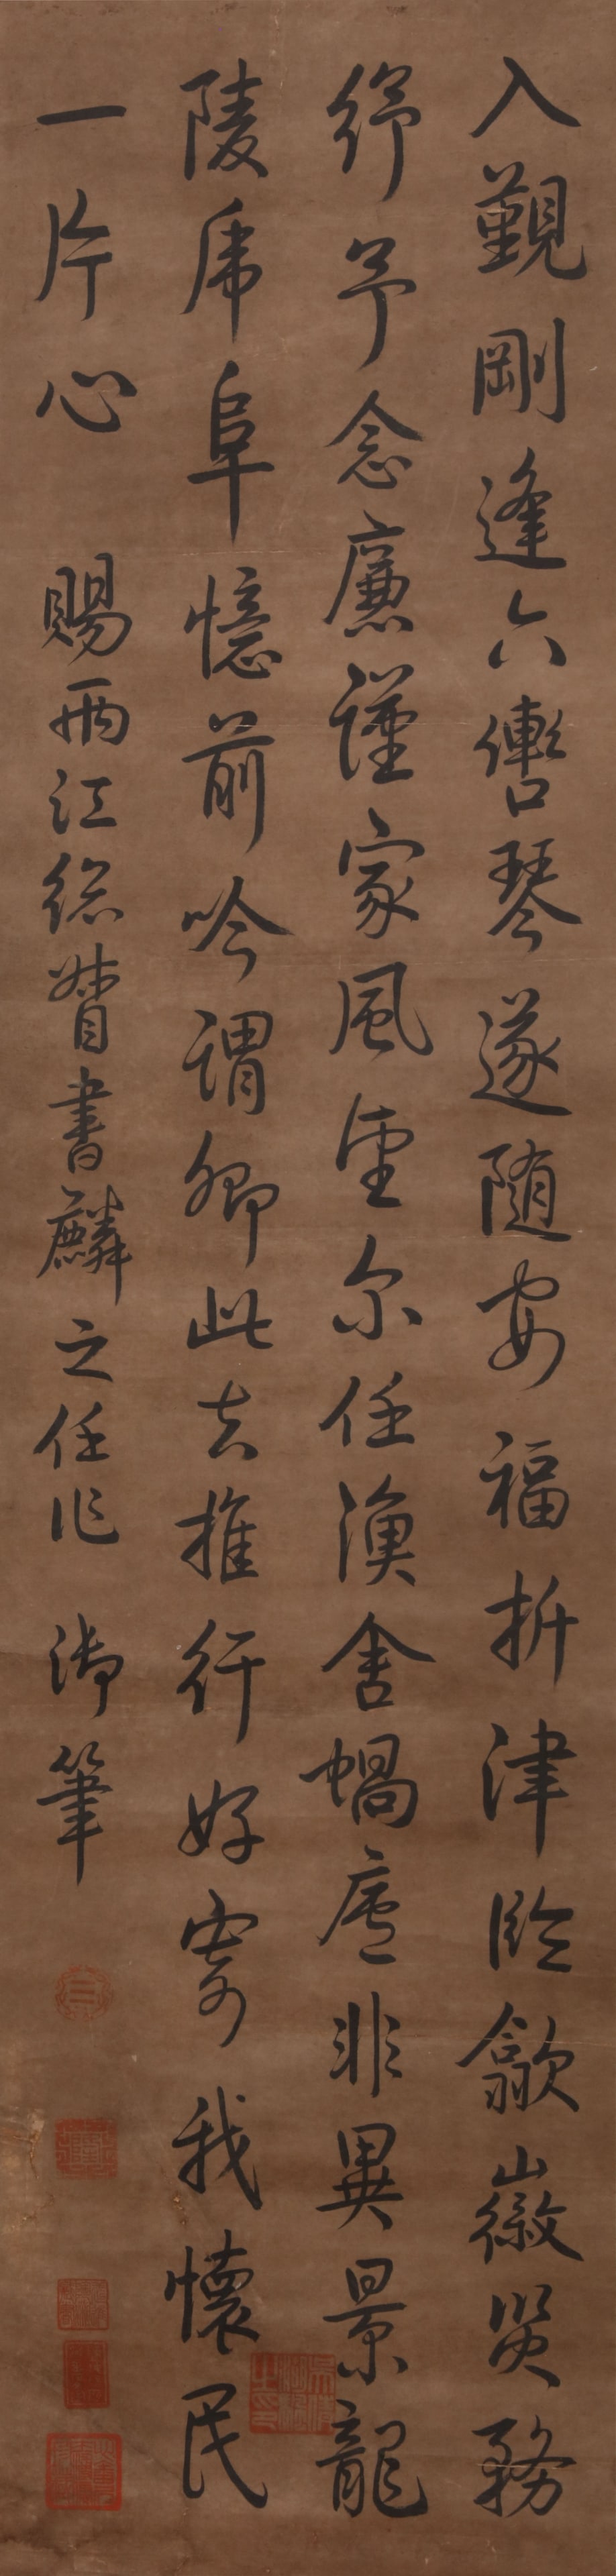 入覲剛逢六轡琴遂随安福析津臨歙徽災務
紓予念廉謹家風望尔任漁舍蝸廬非異景龍
陵虎阜憶前吟謂卿此去推行好寄我懷民
一片心 賜兩江總督書麟之任作 御筆